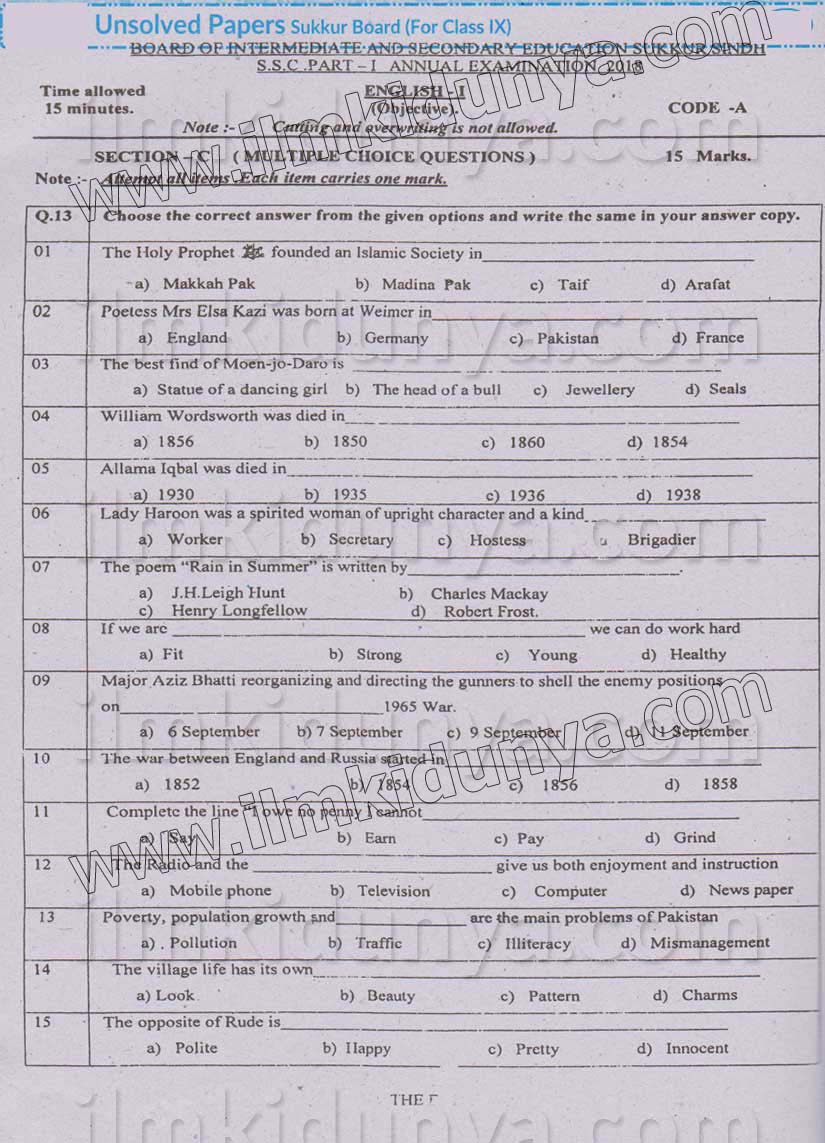 Unsolved Papers Sukkur Board (For Class IX)
BOARD OF INTERMEDIATE AND SECONDARY EDUCATION SUKKUR SINDH
S.S.C .PART – I ANNUAL EXAMINATION 2018
Time allowed ENGLISH - I
15 minutes. (Objective). CODE -A
Note :- Cutting and overwriting is not allowed.
SECTION – C ( MULTIPLE CHOICE QUESTIONS ) 15 Marks.
Note :- Attempt all items .Each item carries one mark.
Q.13 Choose the correct answer from the given options and write the same in your answer copy.
01 The Holy Prophet ﷺ founded an Islamic Society in
a) Makkah Pak b) Madina Pak c) Taif d) Arafat
02 Poetess Mrs Elsa Kazi was born at Weimer in
a) England b) Germany c) Pakistan d) France
03 The best find of Moen-jo-Daro is
a) Statue of a dancing girl b) The head of a bull c) Jewellery d) Seals
04 William Wordsworth was died in
a) 1856 b) 1850 c) 1860 d) 1854
05 Allama Iqbal was died in
a) 1930 b) 1935 c) 1936 d) 1938
06 Lady Haroon was a spirited woman of upright character and a kind
a) Worker b) Secretary c) Hostess Brigadier
07 The poem “Rain in Summer” is written by .
a) J.H.Leigh Hunt b) Charles Mackay
c) Henry Longfellow d) Robert Frost.
08 If we are we can do work hard
a) Fit b) Strong c) Young d) Healthy
09 Major Aziz Bhatti reorganizing and directing the gunners to shell the enemy positions
on 1965 War.
a) 6 September b) 7 September c) 9 September d) 11 September
10 The war between England and Russia started in
a) 1852 b) 1854 c) 1856 d) 1858
11 Complete the line “I owe no penny I cannot
a) Say b) Earn c) Pay d) Grind
12 The Radio and the give us both enjoyment and instruction
a) Mobile phone b) Television c) Computer d) News paper
13 Poverty, population growth and are the main problems of Pakistan
a) . Pollution b) Traffic c) Illiteracy d) Mismanagement
14 The village life has its own
a) Look b) Beauty c) Pattern d) Charms
15 The opposite of Rude is
a) Polite b) Happy c) Pretty d) Innocent
THE
www.ilmkidunya.com
www.ilmkidunya.com
ilmkidunya.com
ilmkidunya.com
ilmkidunya.com
ilmkidunya.com
ilmkidunya.com
ilmkidunya.com